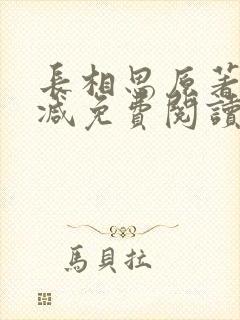 長相思原著
減免費閱讀
馬貝拉